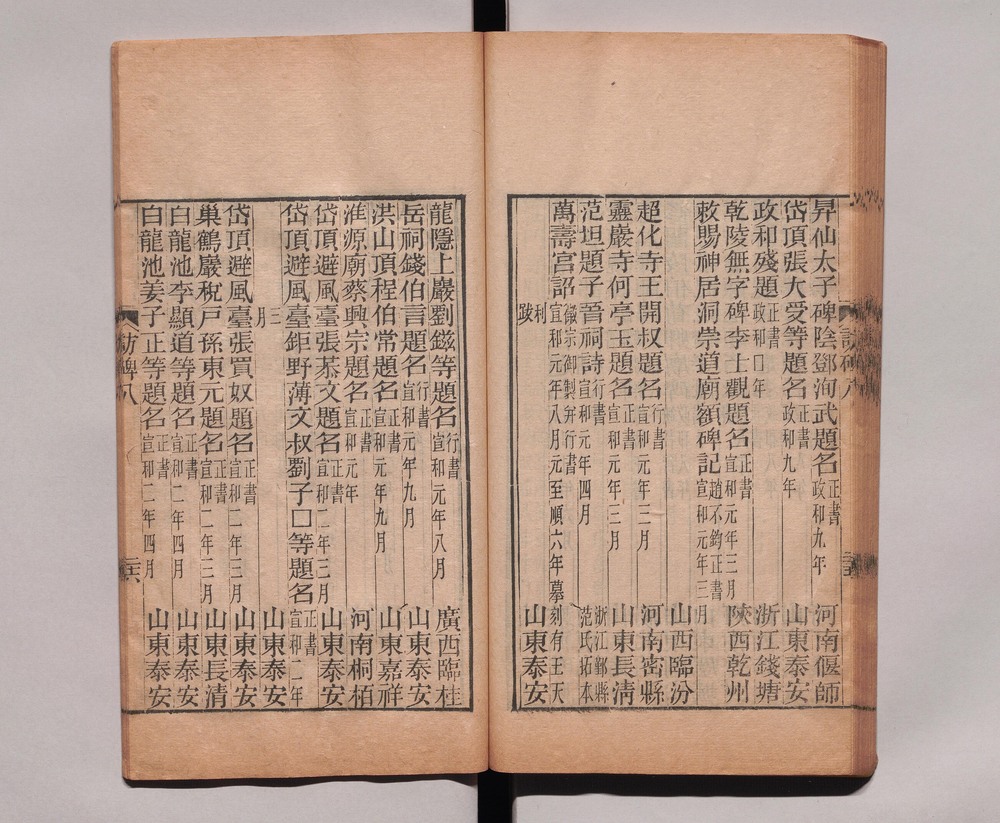 昇仙太子碑陰鄧洵武題名 正書 政和九年 河南偃師
岱頂張大受等題名 正書 政和九年 山東泰安
政和殘題 正書 政和口年 浙江錢塘
乾陵無字碑李士觀題名 正書 宣和元年二月 陝西乾州
敕賜神居洞崇道廟額碑記 趙不鈞正書 宣和元年三月
山西臨汾
超化寺王開叔題名 行書 宣和元年三月 河南密縣
靈巖寺何亭玉題名 正書 宣和元年三月 山東長淸
范坦題子晉祠詩 行書 宣和元年四月 浙江鄞縣范氏拓本
萬壽宮詔 徽宗御製幷行書 宣和元年八月元至順六年摹刻有王天
利跋 山東泰安
龍隱上巖劉鎡等題名 行書 宣和元年八月 廣西臨桂
岳祠錢伯言題名 行書 宣和元年九月 山東泰安
洪山頂程伯常題名 正書 宣和元年九月 山東嘉祥
淮源廟蔡興宗題名 正書 宣和元年 河南桐栢
岱頂避風臺張慕文題名 正書 宣和二年三月 山東泰安
岱頂避風臺鉅野薄文叔劉子口等題名 正書 宣和二年
三月 山東泰安
岱頂避風臺張買奴題名 正書 宣和二年三月 山東泰安
巢鶴巖稅戸孫東元題名 正書 宣和二年三月 山東長清
白龍池李顯道等題名 正書 宣和二年四月 山東泰安
白龍池姜子正等題名 正書 宣和二年四月 山東泰安
訪碑八